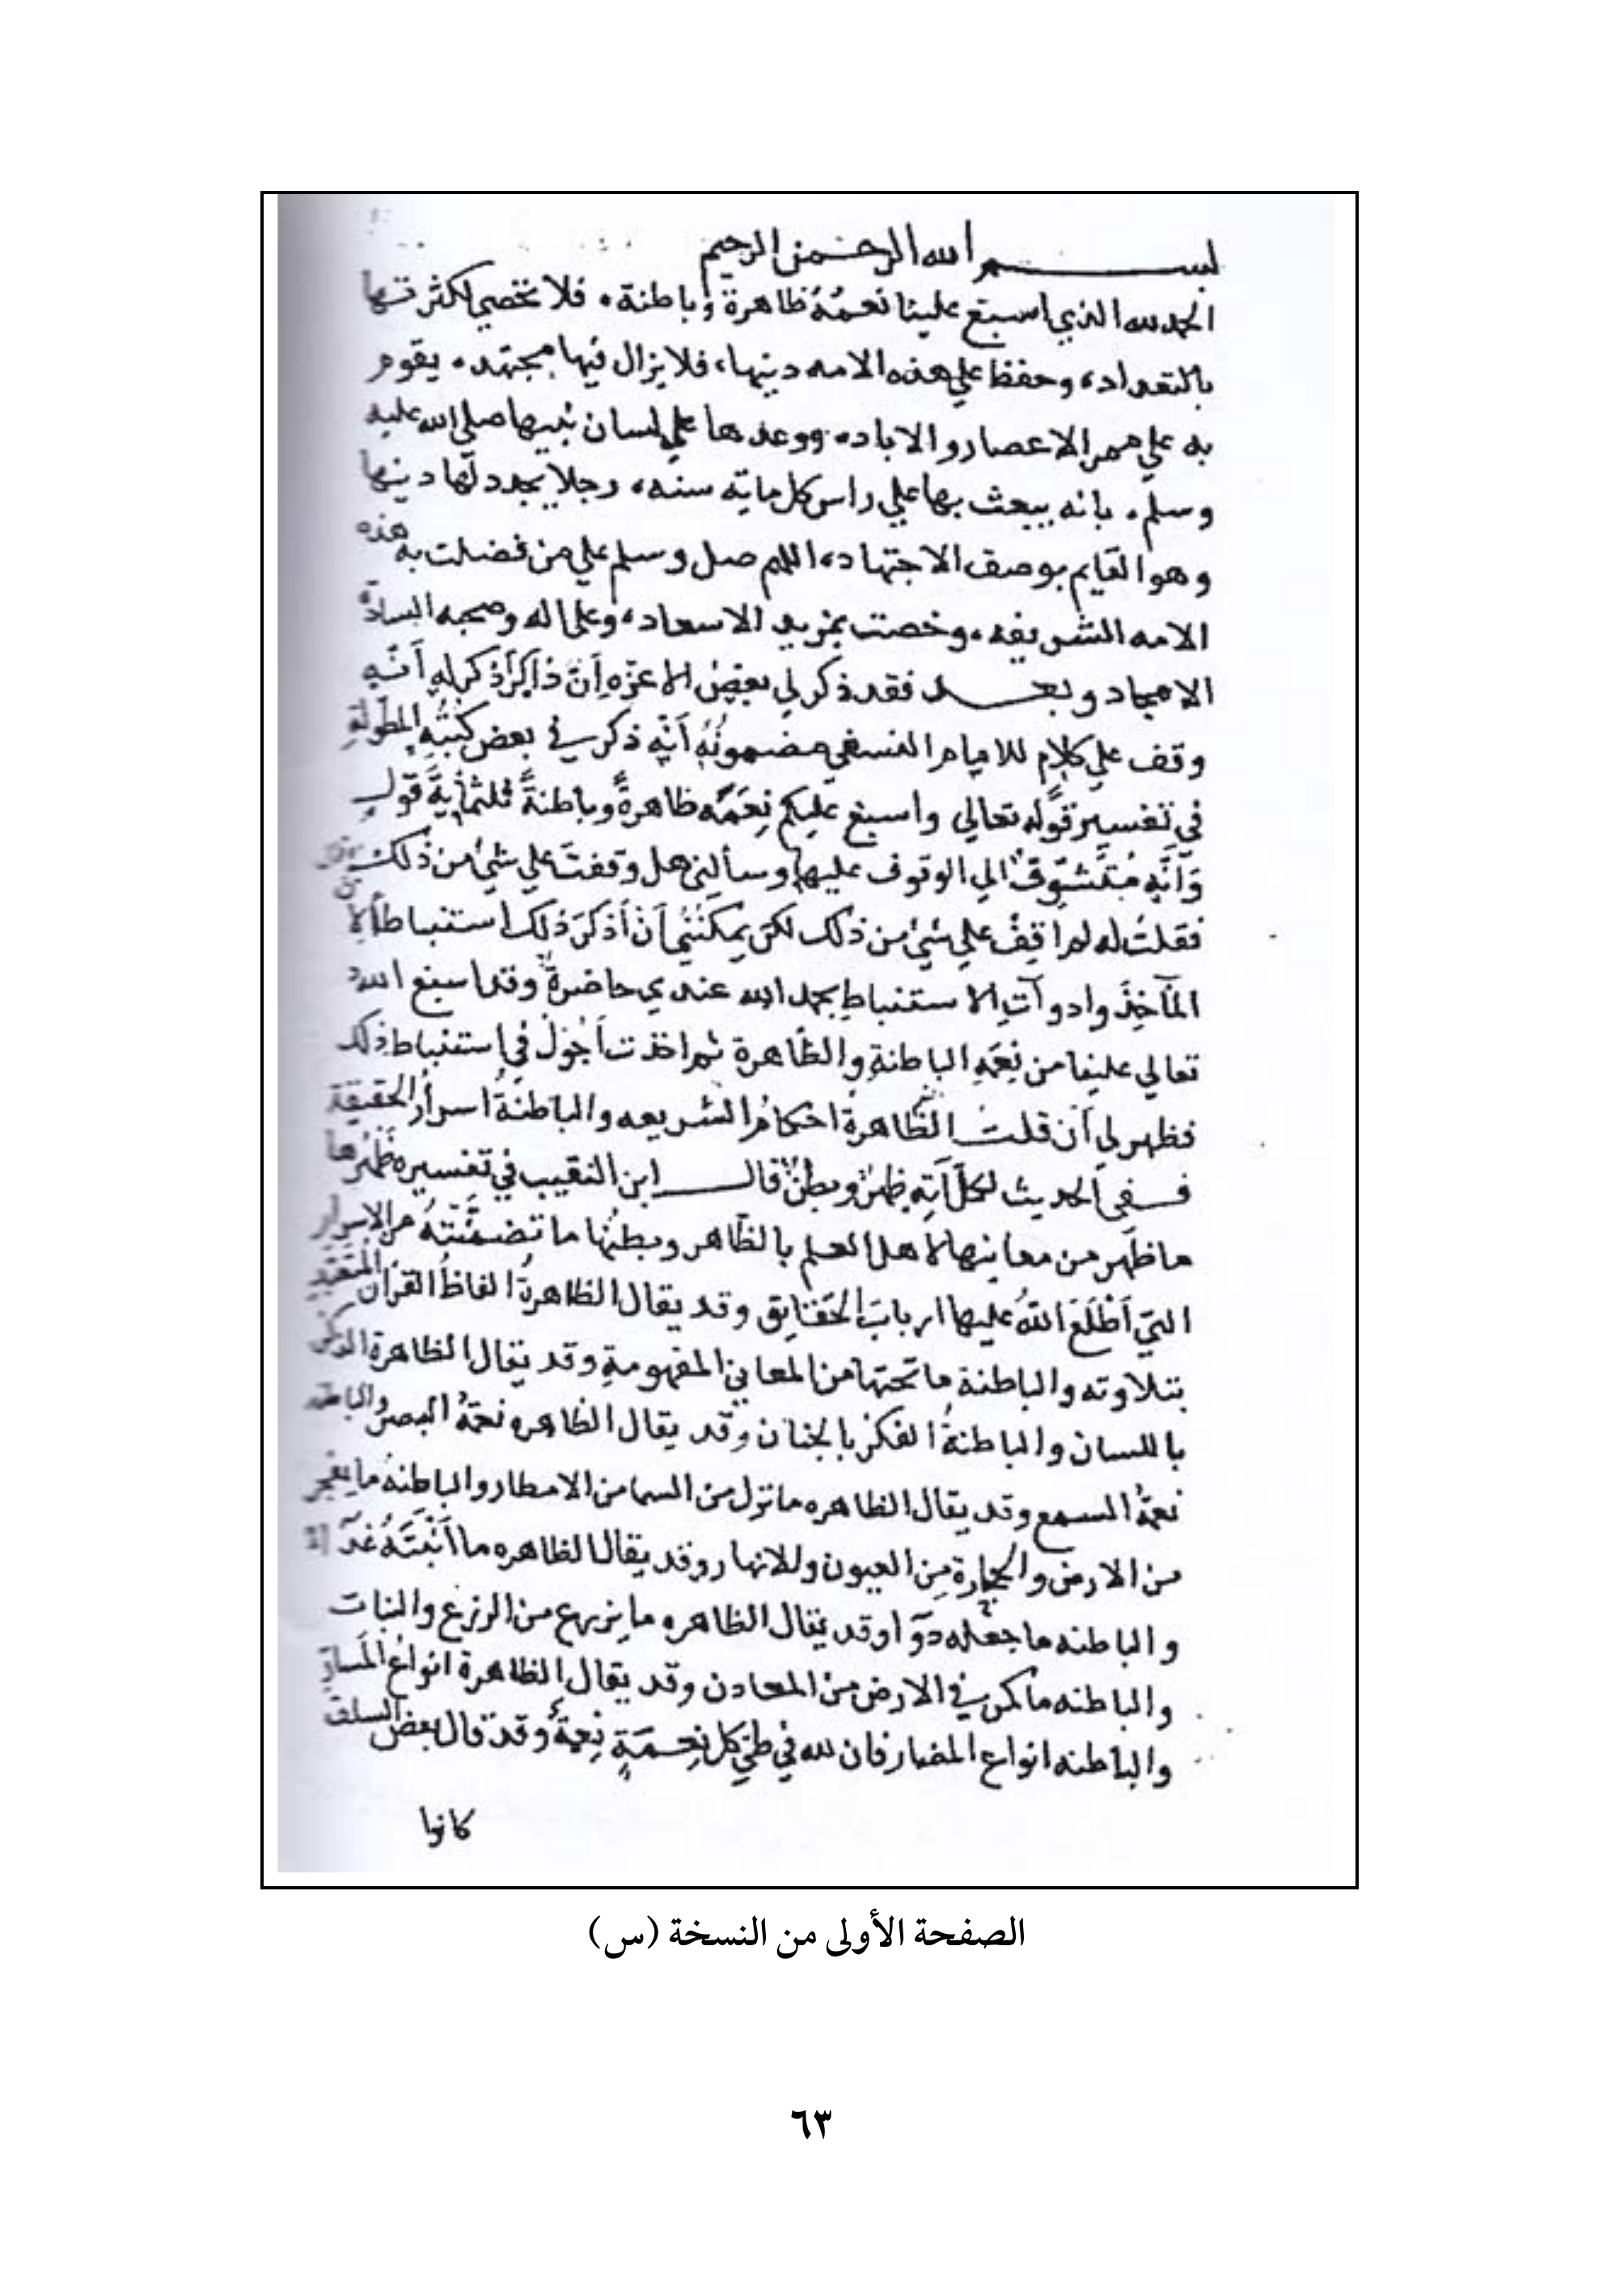 بسم الله الرحمن الرحيم
الحمد لله الذي اسبغ علينا نعمهُ ظاهرة وباطنة، فلا تحصي لكثرتها
بالتعداد، وحفظ علي هذه الامه دينها، فلا يزال فيها مجتهد، يقوم
به علي ممر الاعصار والاباد، ووعدها علي لسان نبيها صلي الله عليه
وسلم، بانه يبعث بها علي راس كل ماية سنه، رجلا يجدد لها دينها
وهو القايم بوصف الاجتهاد، اللهم صل وسلم علي من فضلت به هذه
الامه الشريفه، وخصت بمزيد الاسعاد، وعلي اله وصحبه السادة
الامجاد وبعد فقد ذكر لي بعضُ الاعزه أنَّ ذاكرًا ذكر له أنه
وقف علي كلام للامام النسفي مضمونُهُ أنه ذكر في بعض كتبه المطولة
في تفسير قوله تعالي واسبغ عليكم نِعَمَه ظاهرةً وباطنةً ثلثماية قول
وَأنه مُتشوّقٌ الي الوقوف عليها وسألني هل وقفتَ علي شيء من ذلك
فقلتُ له لم اقِفْ علي شيء من ذلك لكن يمكننُي أنْ أذكرَ ذلك استنباطا
المآخِذَ وادوآتِ الاستنباطِ بحمد الله عندي حاضرةٌ وقد اسبغ الله
تعالي علينا من نِعَمِه الباطنةِ والظاهرة ثم اخذت أجُولُ في استنباط ذلك
فظهر لي أن قلت الظاهرةُ احكامُ الشريعه والباطنةُ اسرارُ الحقيقة
ففي الحديث لكلّ آية ظهرٌ وبطنٌ قال ابن النقيب في تفسيره ظهرها
ما ظهر من معانيها لاهل العلم بالظاهر وبطنُها ما تضمَّنتهُ من الاسرار
التي أطْلَعَ اللهُ عليها اربابَ الحقايق وقد يقال الظاهرةُ الفاظُ القرآن المتعبد
بتلاوته والباطنة ما تحتها من المعاني المفهومة وقد يقال الظاهرة الذكر
باللسان والباطنةُ الفكرُ بالجنان وقد يقال الظاهره نعمةُ البصر والباطنه
نعمةُ السمع وقد يقال الظاهره ما نزل من السما من الامطار والباطنهُ ما يفجر
من الارض والحجارةِ مِن العيون وللانهار وقد يقال الظاهره ما أنْبَتَهُ غدآ
والباطنه ما جعله دوآ وقد يقال الظاهره ما يزرع من الزرع والنبات
والباطنه ما كمن في الارض من المعادن وقد يقال الظاهرة انواعُ المسارِّ
والباطنه انواع المضار فان لله في طيِّ كل نِعمَةٍ نِعمةٌ وقد قال بعض السلف
كانوا
الصفحة الأولى من النسخة (س)
٦٣